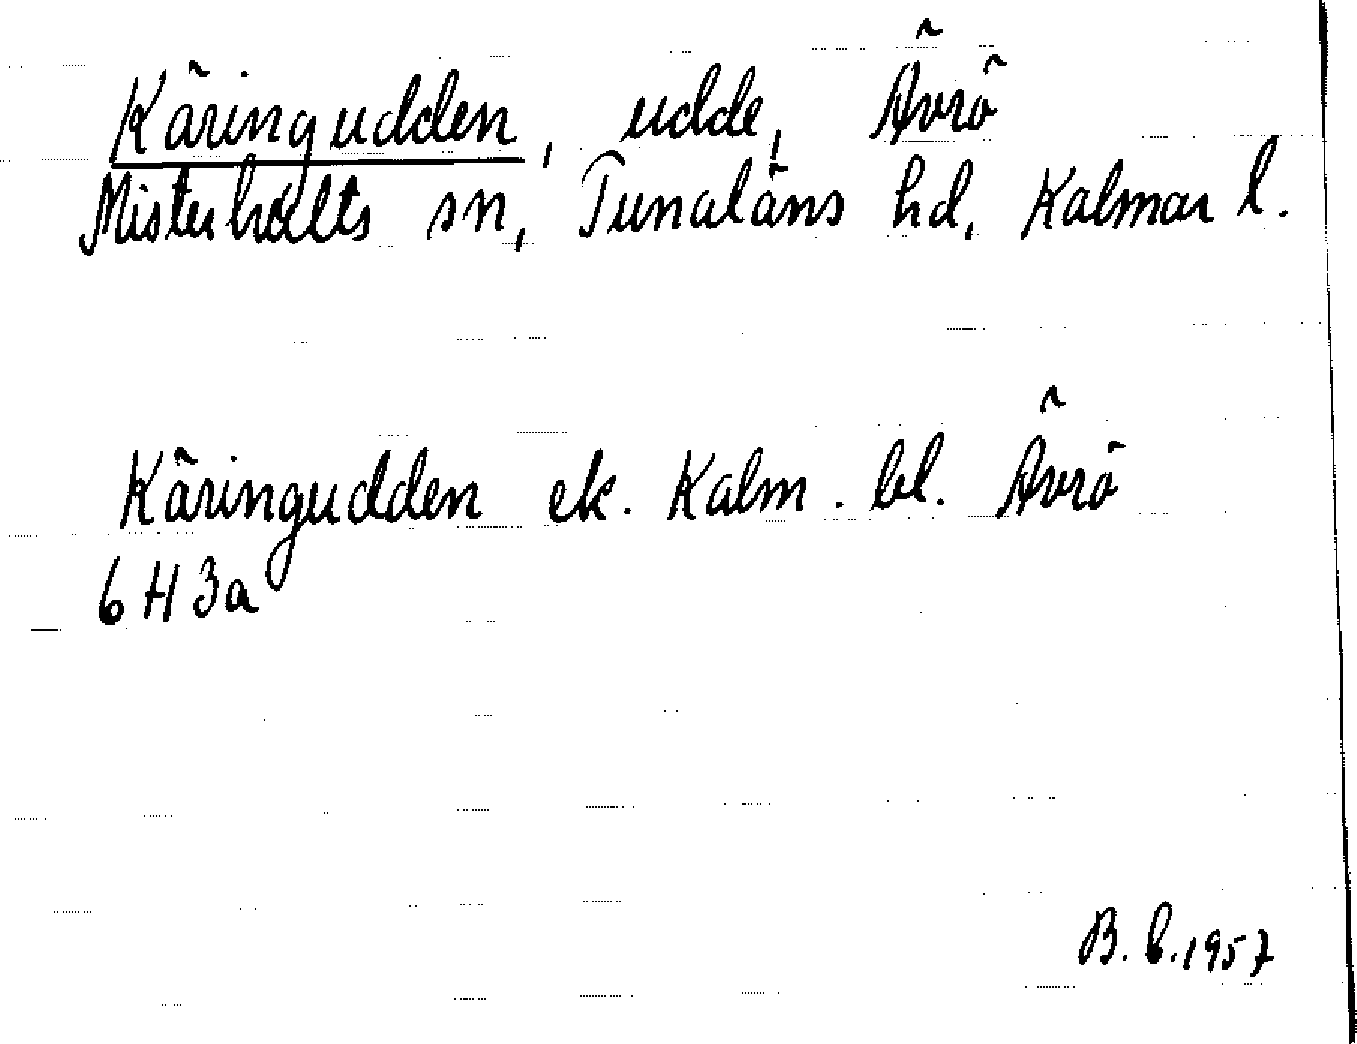 Käringudden, udde, Ävrö
Misterhults sn, Tunaläns hd, Kalmar l.
Käringudden ek. Kalm. bl. Ävrö
6 H 3a
B. b. 1957